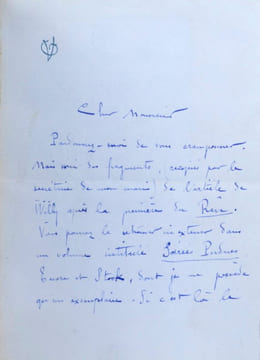 Cher Monsieur
Pardonnez-moi de vous
Mais voici des fragments, recopiés par le
secrétaire de mon mari, de l'article de
Willy après la première du Rêve.
Vous pouvez le retrouver in extenso dans
un volume intitulé Soirées Perdues
Encore et Stock, dont je ne possède
qu'un exemplaire. Si c'est là le